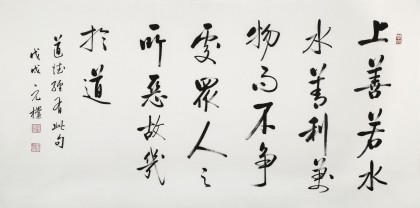 上善若水
水善利萬
物而不争
處眾人之
所惡故幾
於道
道德經有此句
戊戌 元樸